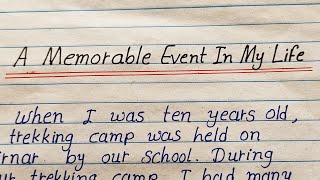 A Memorable Event In My Life
When I was ten years old,
trekking camp was held on
by our school. During
trekking camp, I had many